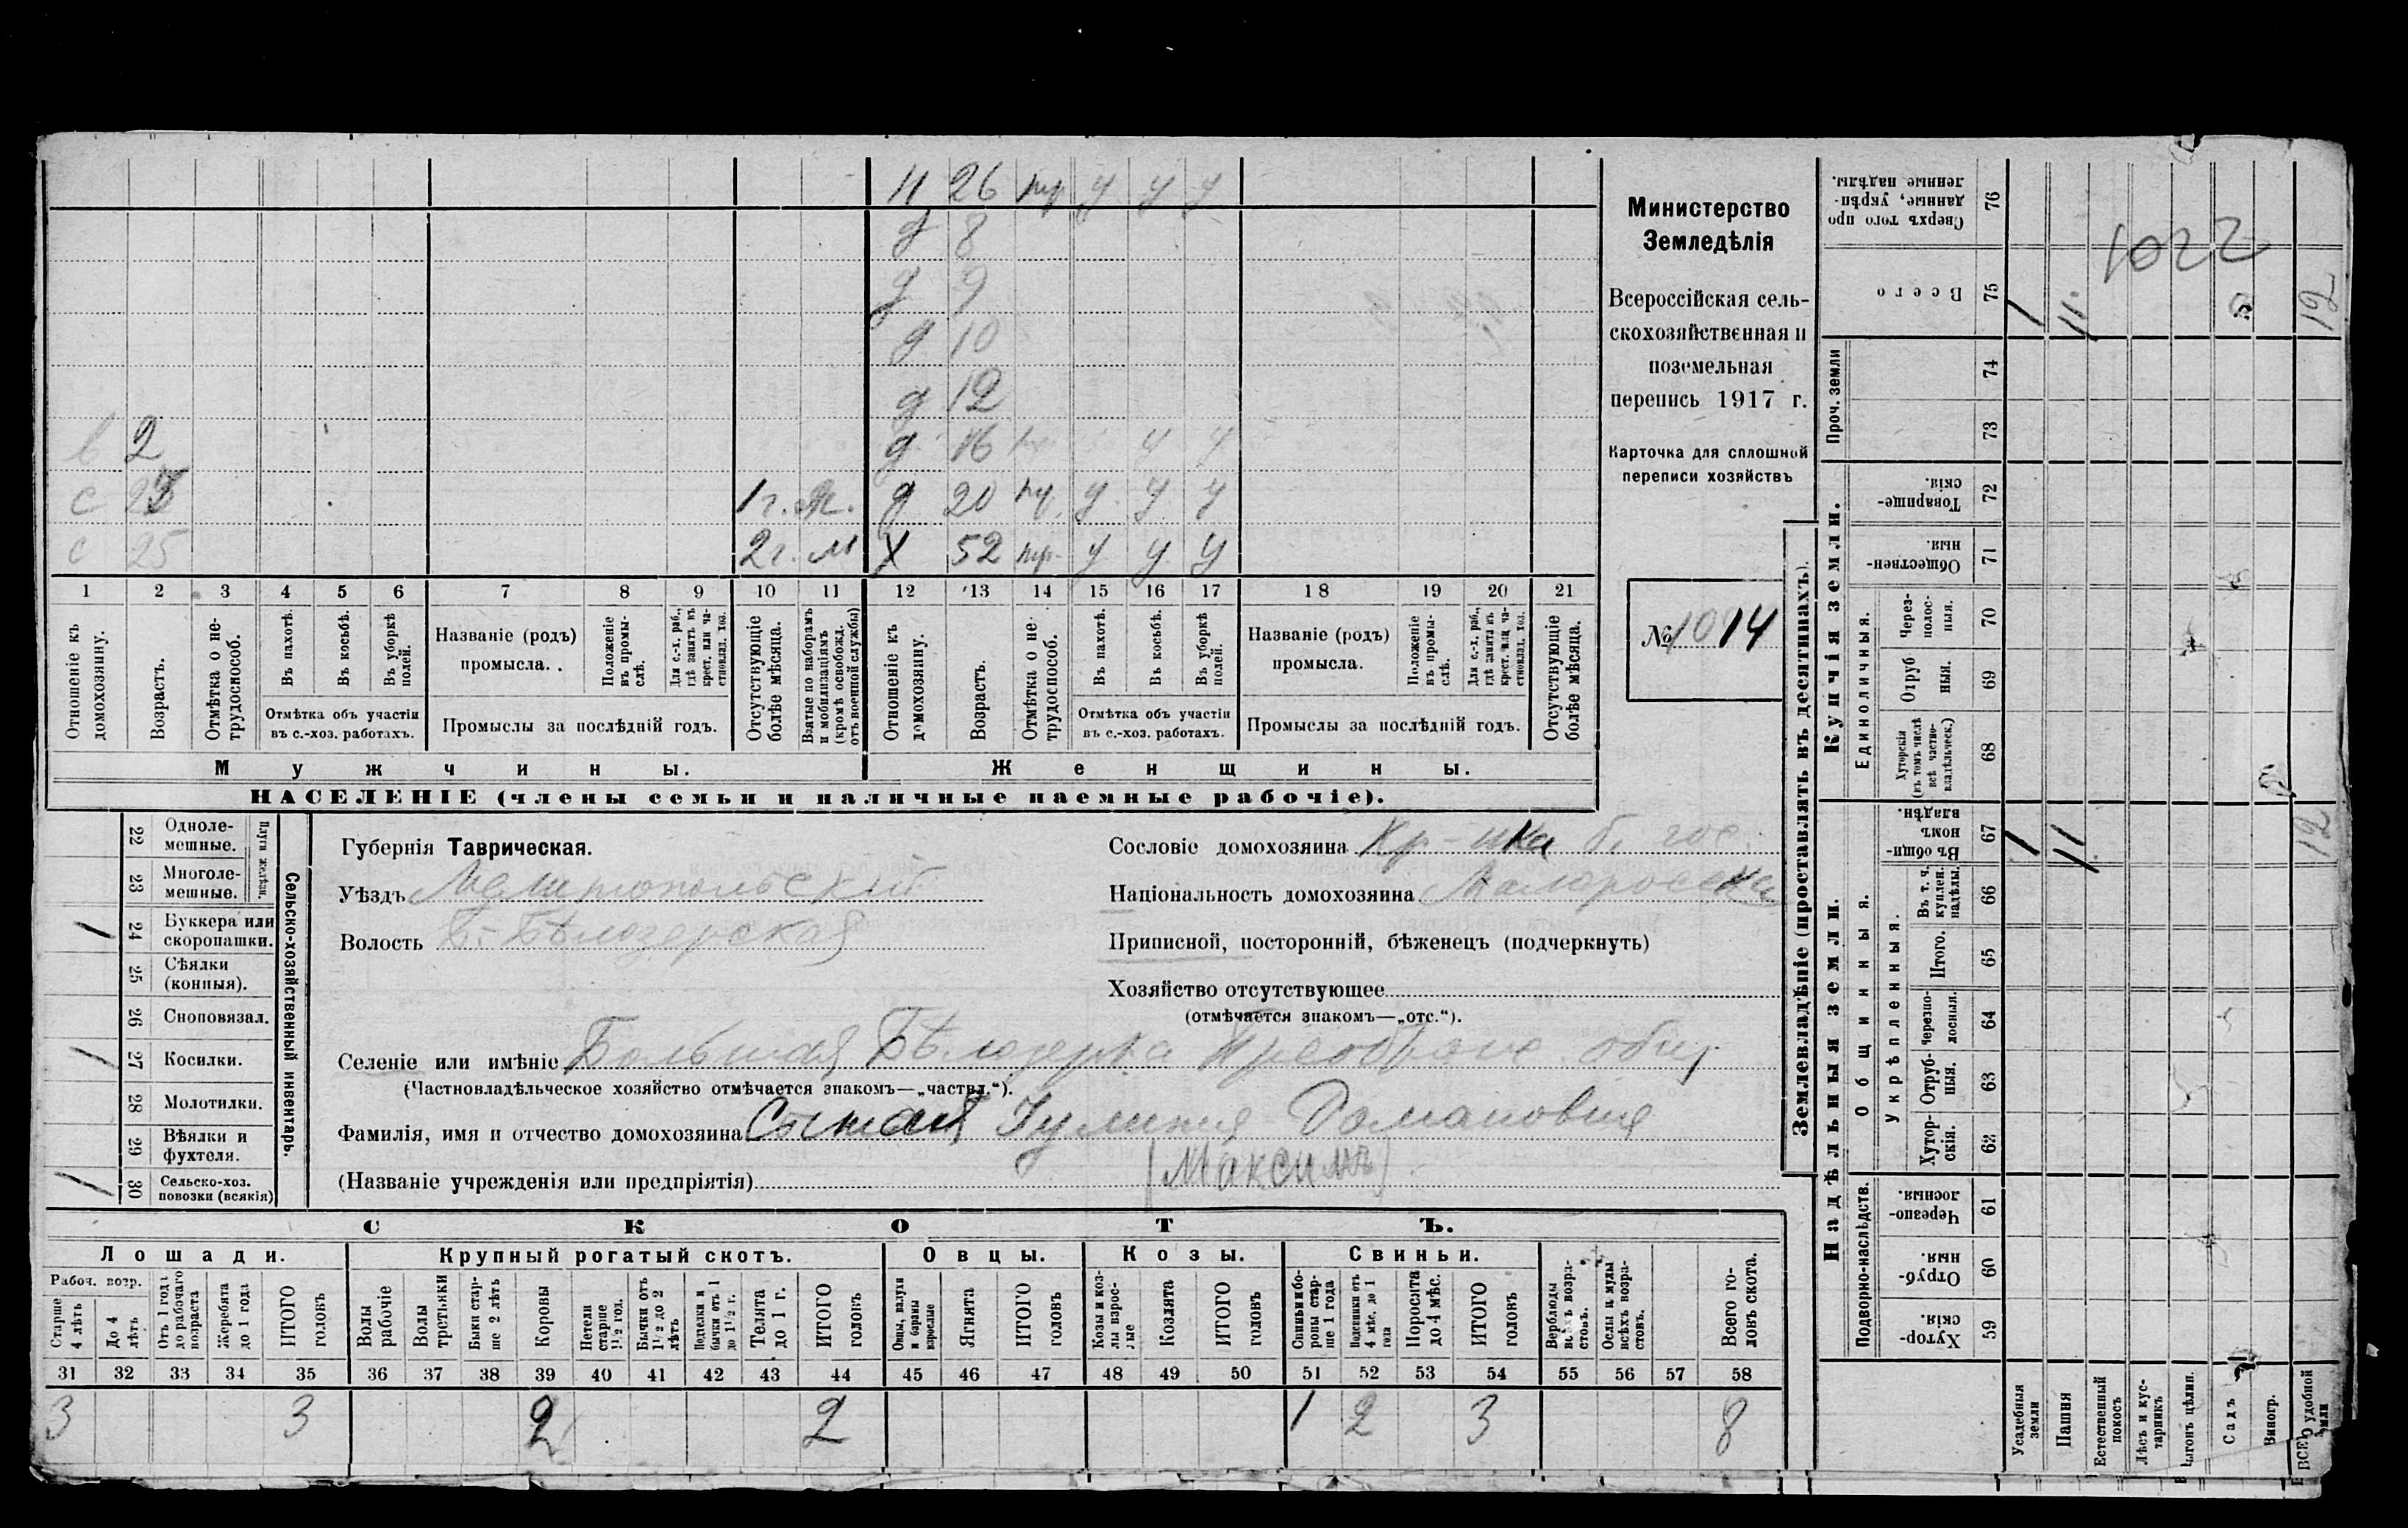 н 26 тр у у у
д 8
д 9
д 10
д 12
в 2 д 16 у у
с 23 1 г. м. д 20 тр. у у у
с 25 2 г. м х 52 тр. у у у
1 2 3 4 5 6 7 8 9 10 11 12 13 14 15 16 17 18 19 20 21
Отношеніе къ домохозяину.
Возрастъ.
Отмѣтка о нетрудоспособ.
Въ пахотѣ.
Въ косьбѣ.
Въ уборкѣ полей.
Отмѣтка объ участіи
въ с.-хоз. работахъ.
Названіе (родъ)
промысла.
Положеніе въ промыслѣ.
Для с.-х. раб., гдѣ занятъ въ крест. или частновлад. хоз.
Промыслы за послѣдній годъ.
Отсутствующіе болѣе мѣсяца.
Взятые по наборамъ и мобилизаціямъ (кромѣ освобожд. отъ военной службы)
Отношеніе къ домохозяину.
Возрастъ.
Отмѣтка о нетрудоспособ.
Въ пахотѣ.
Въ косьбѣ.
Въ уборкѣ полей.
Отмѣтка объ участіи
въ с.-хоз. работахъ.
Названіе (родъ)
промысла.
Положеніе въ промыслѣ.
Для с.-х. раб., гдѣ занята въ крест. или частновлад. хоз.
Промыслы за послѣдній годъ.
Отсутствующіе болѣе мѣсяца.
Мужчины. Женщины.
НАСЕЛЕНІЕ (члены семьи и наличные наемные рабочіе).
Министерство
Земледѣлія
Всероссійская сель-
скохозяйственная и
поземельная
перепись 1917 г.
Карточка для сплошной
переписи хозяйствъ
№ 1014
Сельско-хозяйственный инвентарь.
Плуги желѣзн.
22 Одноле-
мешные.
23 Многоле-
мешные.
1 24 Буккера или
скоропашки.
25 Сѣялки
(конныя).
26 Сноповязал.
1 27 Косилки.
28 Молотилки.
29 Вѣялки и
фухтеля.
1 30 Сельско-хоз.
повозки (всякія)
Губернія Таврическая.
Уѣздъ Мелитопольскій
Волость Б.-Бѣлозерская
Сословіе домохозяина Кр-нка б. гос.
Національность домохозяина Малоросска
Приписной, посторонній, бѣженецъ (подчеркнуть)
Хозяйство отсутствующее
(отмѣчается знакомъ—„отс.“).
Селеніе или имѣніе Большая Бѣлозерка Преображ. общ
(Частновладѣльческое хозяйство отмѣчается знакомъ—„частвл.“).
Фамилія, имя и отчество домохозяина Сытая Домановна
(Максимъ)
(Названіе учрежденія или предпріятія)
СКОТЪ.
Лошади. Крупный рогатый скотъ. Овцы. Козы. Свиньи.
Рабоч. возр.
Старше 4 лѣтъ
До 4 лѣтъ
Отъ 1 года до рабочаго возраста
Жеребята до 1 года
ИТОГО головъ
Волы рабочіе
Волы третьяки
Быки старше 2 лѣтъ
Коровы
Нетели старше 1½ год.
Бычки отъ 1½ до 2 лѣтъ
Подтелки и бычки отъ 1 до 1½ г.
Телята до 1 г.
ИТОГО головъ
Овцы, валухи и бараны взрослые
Ягнята
ИТОГО головъ
Козы и козлы взрослые
Козлята
ИТОГО головъ
Свиньи и боровы старше 1 года
Подсвинки отъ 4 мѣс. до 1 года
Поросята до 4 мѣс.
ИТОГО головъ
Верблюды всѣхъ возрастовъ.
Ослы и мулы всѣхъ возрастовъ.
Всего головъ скота.
31 32 33 34 35 36 37 38 39 40 41 42 43 44 45 46 47 48 49 50 51 52 53 54 55 56 57 58
3 3 2 2 1 2 3 8
Землевладѣніе (проставлять въ десятинахъ).
Купчія земли.
Надѣльныя земли.
Сверхъ того проданные, укрѣпленные надѣлы. 76
1022
Всего 75 1 11 12
Проч. земли 74
73
Товарищескія. 72
Общественныя. 71
Единоличныя.
Черезполосныя. 70
Отрубныя. 69
Хуторскія (въ томъ числѣ всѣ частновладѣльческ.) 68
Общинныя.
Въ общинномъ владѣн. 67 1 11 12
Укрѣпленныя.
Въ т. ч. куплен. надѣлы. 66
Итого. 65
Черезполосныя. 64
Отрубныя. 63
Хуторскія. 62
Подворно-наслѣдств.
Черезполосныя. 61
Отрубныя. 60
Хуторскія. 59
Усадебныя земли
Пашня
Естественный покосъ
Лѣсъ и кустарникъ
Выгонъ цѣлин.
Садъ
Виногр.
ВСЕГО удобной земли